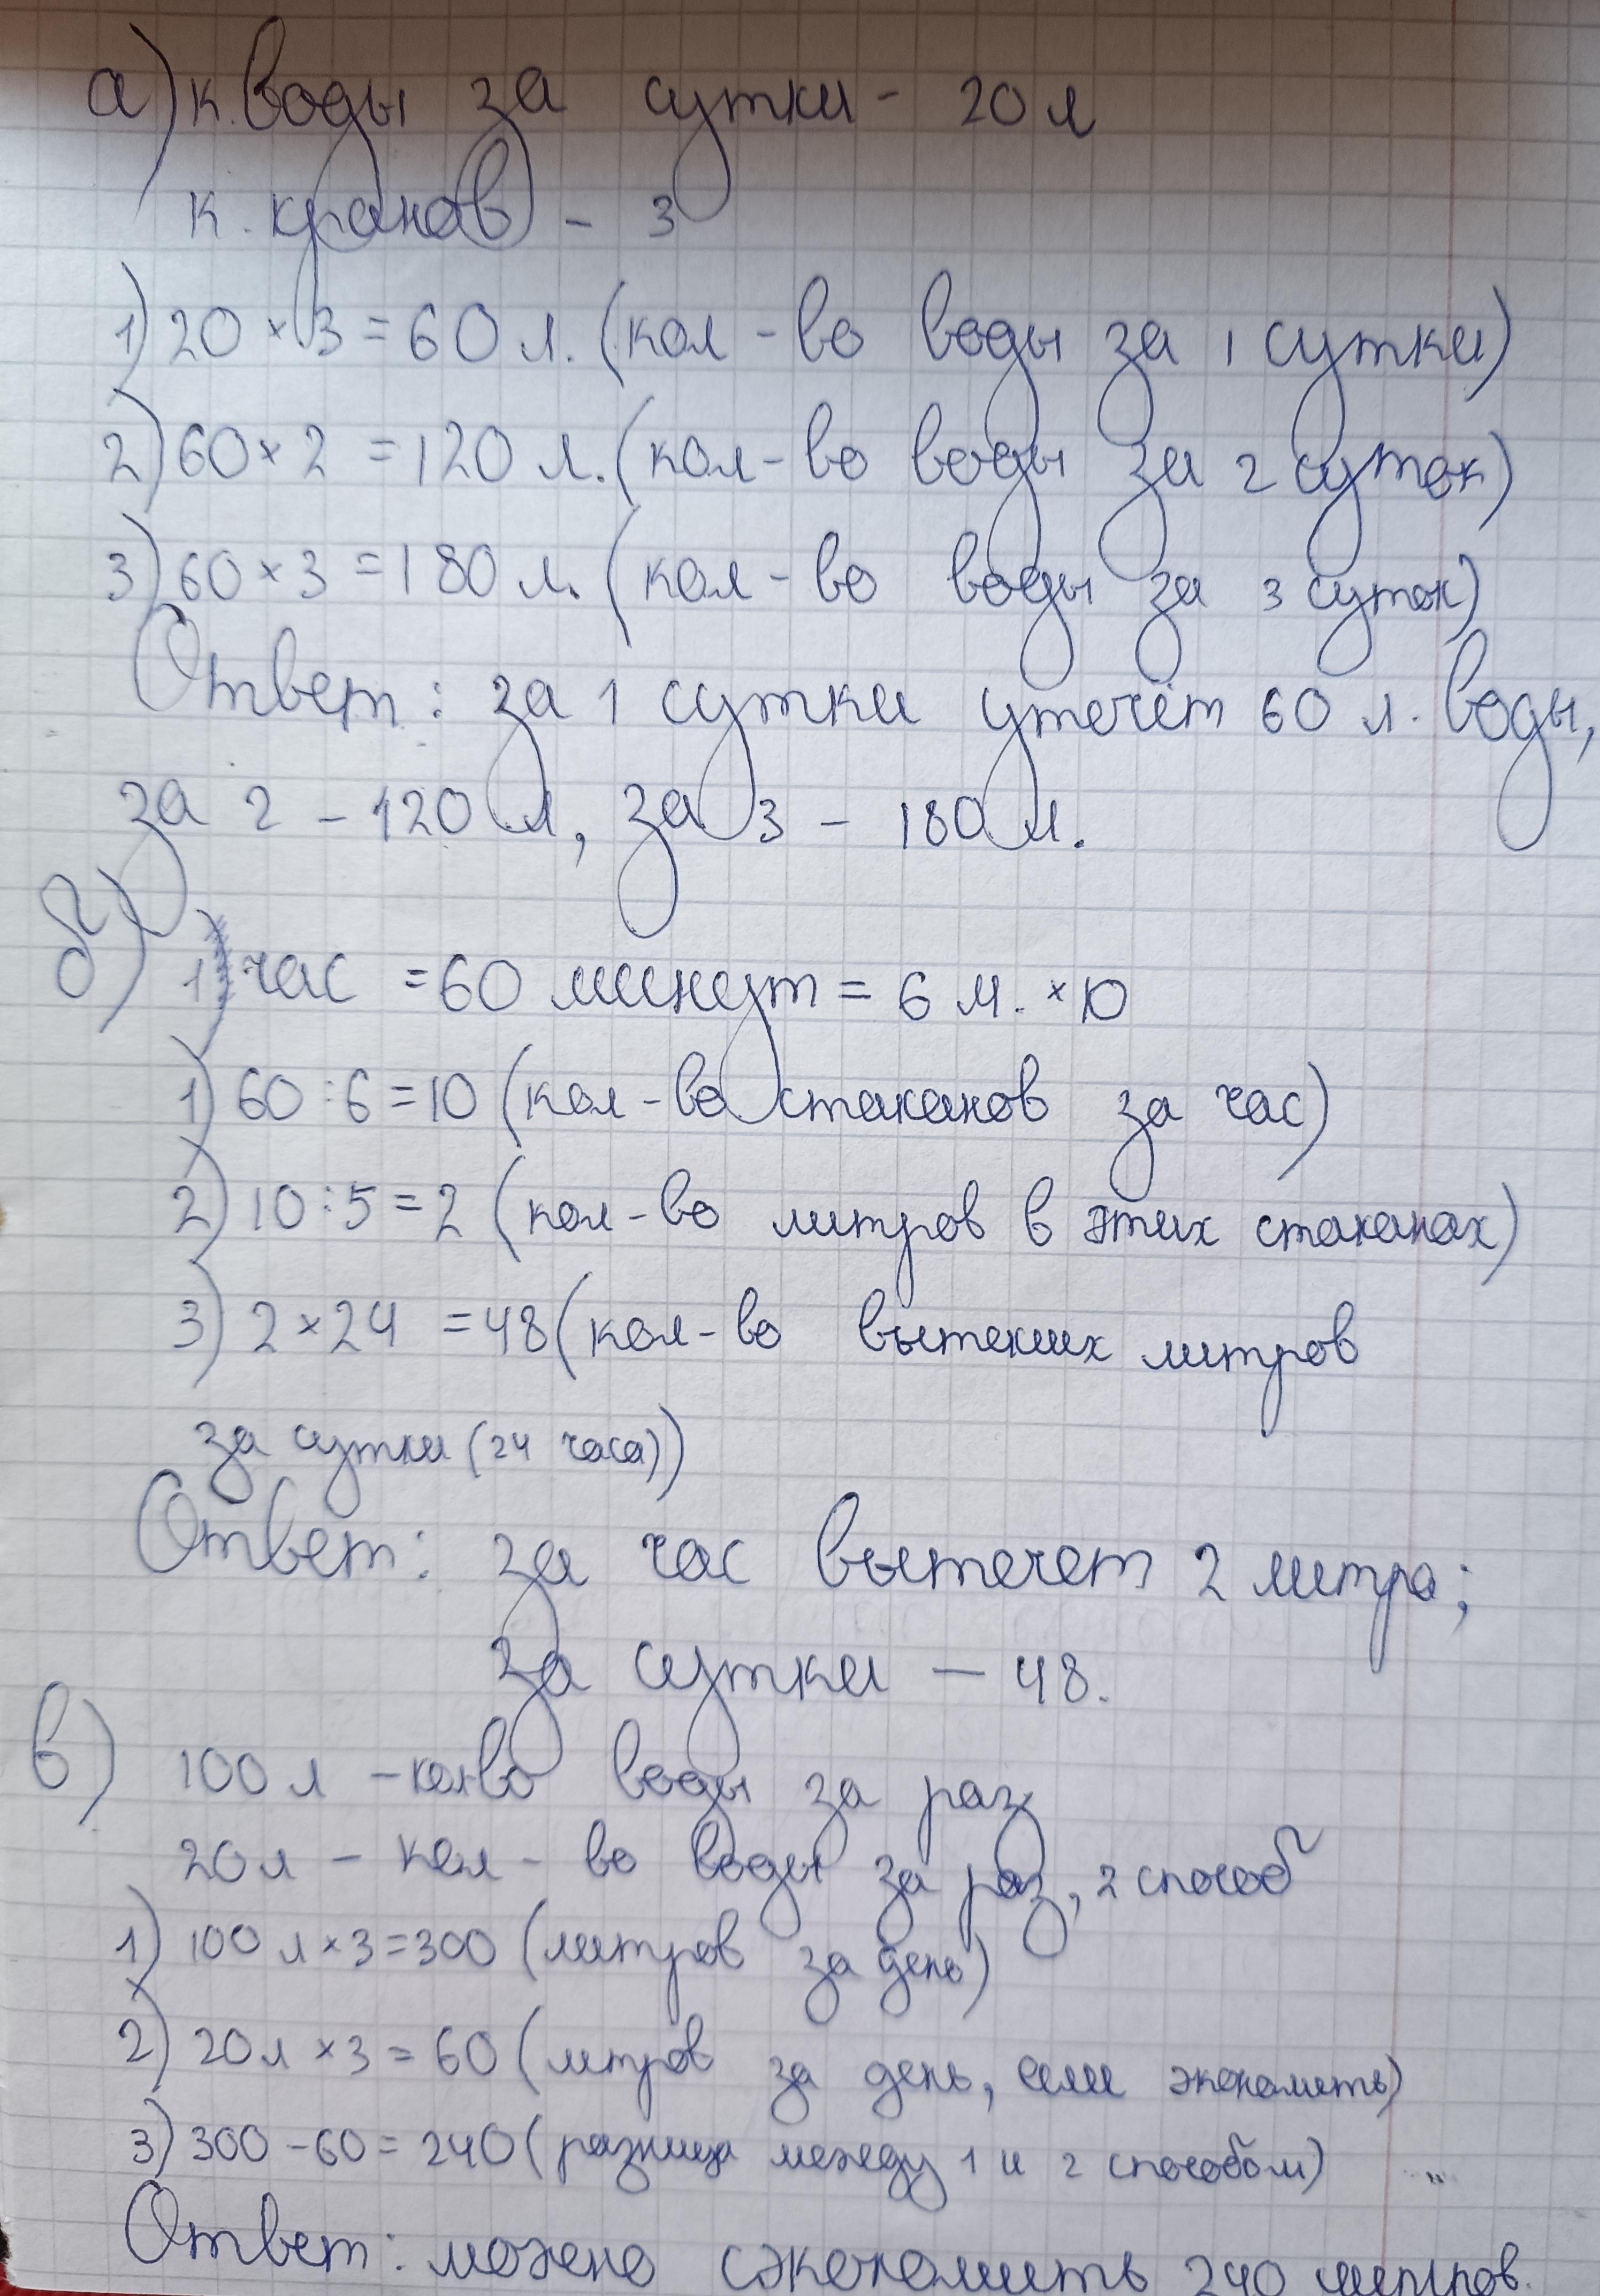 а) к. воды за сутки - 20 л
к. кранов - 3
1) 20 × 3 = 60 л. (кол-во воды за 1 сутки)
2) 60 × 2 = 120 л. (кол-во воды за 2 суток)
3) 60 × 3 = 180 л. (кол-во воды за 3 суток)
Ответ: за 1 сутки утечёт 60 л. воды,
за 2 - 120 л, за 3 - 180 л.
б) 1 час = 60 минут = 6 м. × 10
1) 60 : 6 = 10 (кол-во стаканов за час)
2) 10 : 5 = 2 (кол-во литров в этих стаканах)
3) 2 × 24 = 48 (кол-во вытекших литров
за сутки (24 часа))
Ответ: за час вытечет 2 литра;
за сутки — 48.
в) 100 л - кол-во воды за раз
20 л - кол-во воды за раз, 2 способ
1) 100 л × 3 = 300 (литров за день)
2) 20 л × 3 = 60 (литров за день, если экономить)
3) 300 - 60 = 240 (разница между 1 и 2 способом)
Ответ: можно сэкономить 240 литров.